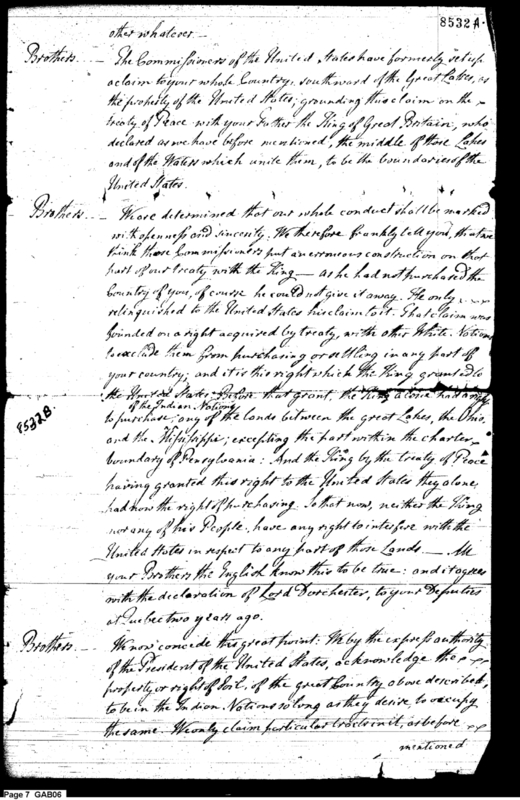 8532A.
other whatever —
Brothers — The Commissioners of the United States have formerly set up
a claim to your whole Country, southward of the Great Lakes, as
the property of the United States; grounding this claim on the
treaty of Peace with your Father the King of Great Britain, who
declared as we have before mentioned, the middle of those Lakes
and of the Waters which unite them, to be the boundaries of the
United States.
Brothers — We are determined that our whole conduct shall be marked
with openness and sincerity. We therefore frankly tell you, that we
think those Commissioners put an erroneous construction on that
part of our treaty with the King — as he had not purchased the
Country of you, of course he could not give it away. He only
relinquished to the United States his claim to it. That claim was
founded on a right acquired by treaty, with other White Nations
to exclude them from purchasing or settling in any part of
your country; and it is this right which the King granted to
the United States. Before that grant, the King alone had a right
of the Indian Nations
to purchase, any of the lands between the great Lakes, the Ohio,
8532B.
and the Missisippi; excepting the part within the charter
boundary of Pensylvania: And the King by the treaty of Peace
having granted this right to the United States they alone,
had now the right of purchasing. So that now, neither the King
nor any of his People, have any right to interfere with the
United States in respect to any part of those Lands — All
your Brothers the English know this to be true: and it agrees
with the declaration of Lord Dorchester, to your Deputies
at Quebec two years ago.
Brothers — We now concede this great point. We by the express authority
of the President of the United States, acknowledge the
property or right of Soil, of the great Country above described,
to be in the Indian Nations so long as they desire to occupy
the same. We only claim particular tracts in it, as before
mentioned
Page 7 GAB06